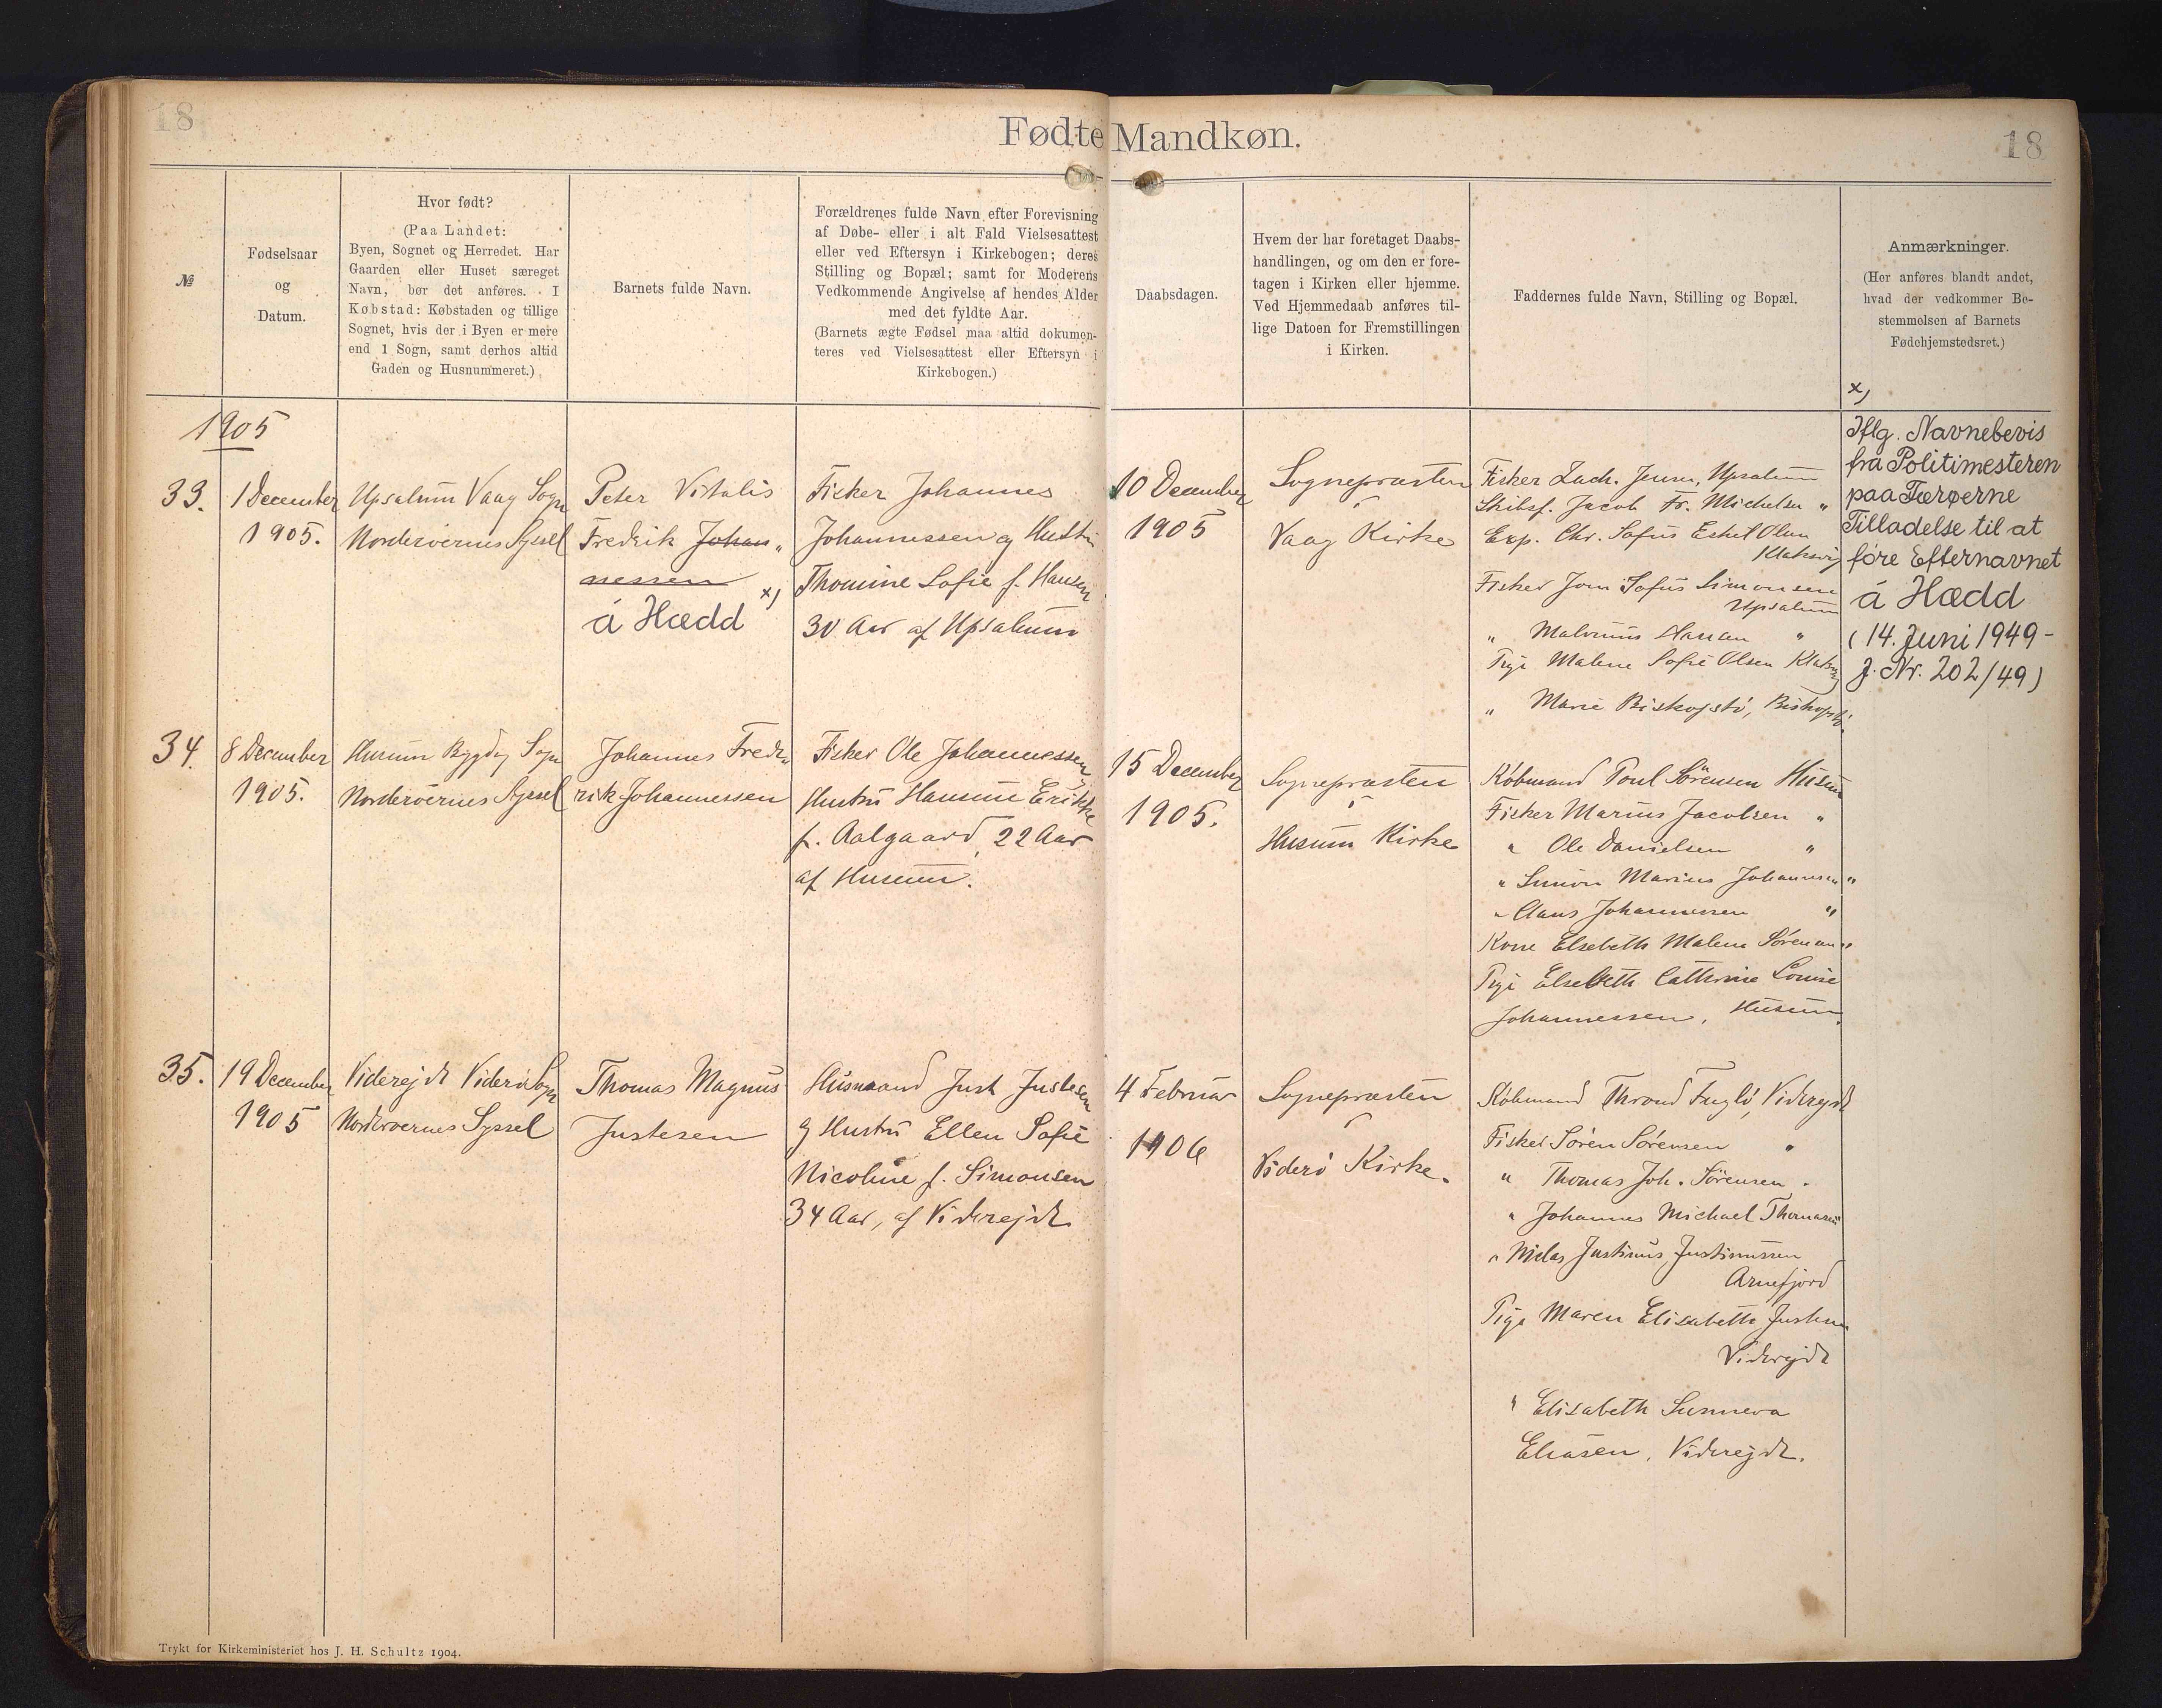 18
Fødte Mandkøn.
18
№
Fødselsaar
og
Datum.
Hvor født?
(Paa Landet:
Byen, Sognet og Herredet. Har
Gaarden eller Huset særeget
Navn, bør det anføres. I
Købstad: Købstaden og tillige
Sognet, hvis der i Byen er mere
end 1 Sogn, samt derhos altid
Gaden og Husnummeret.)
Barnets fulde Navn.
Forældrenes fulde Navn efter Forevisning
af Døbe- eller i alt Fald Vielsesattest
eller ved Eftersyn i Kirkebogen; deres
Stilling og Bopæl; samt for Moderens
Vedkommende Angivelse af hendes Alder
med det fyldte Aar.
(Barnets ægte Fødsel maa altid dokumen-
teres ved Vielsesattest eller Eftersyn i
Kirkebogen.)
Daabsdagen.
Hvem der har foretaget Daabs-
handlingen, og om den er fore-
tagen i Kirken eller hjemme.
Ved Hjemmedaab anføres til-
lige Datoen for Fremstillingen
i Kirken.
Faddernes fulde Navn, Stilling og Bopæl.
Anmærkninger.
(Her anføres blandt andet,
hvad der vedkommer Be-
stemmelsen af Barnets
Fødehjemstedsret.)
1905
33.
1 December
1905.
Upsalum Vaag Sogn
Norderøernes Syssel
Peter Vitalis
Fredrik Johan-
nessen x)
á Hædd
Fisker Johannes
Johannessen og Hustru
Thomine Sofie f. Hansen
30 Aar af Upsalum
10 December
1905
Sognepræsten
i
Vaag Kirke
Fisker Zach. Jensen, Upsalum
Skibsf. Jacob Fr. Michelsen "
Exp. Chr. Sofus Eskel Olsen
Klaksvig
Fisker Jom Sofus Simonsen
Upsalum
" Malvinus Hansen "
Pige Malene Sofie Olsen Klaksvig
" Marie Biskopstø, Biskopstø.
x)
Iflg. Navnebevis
fra Politimesteren
paa Færøerne
Tilladelse til at
føre Efternavnet
á Hædd
(14. Juni 1949-
J. Nr. 202/49)
34.
8 December
1905.
Husum Bygdø Sogn
Norderøernes Syssel
Johannes Fred-
rik Johannessen
Fisker Ole Johannessen
Hustru Hansine Erikke
f. Aalgaard, 22 Aar
af Husum.
15 December
1905.
Sognepræsten
i
Husum Kirke
Købmand Poul Sørensen Husum
Fisker Marius Jacobsen "
" Ole Danielsen "
" Simon Marius Johannesen "
" Claus Johannessen "
Kone Elsebeth Malene Sørensen "
Pige Elsebeth Cathrine Louise
Johannessen, Husum.
35.
19 December
1905
Viderejde Viderø Sogn
Norderøernes Syssel
Thomas Magnus
Justesen
Husmand Just Justesen
og Hustru Ellen Sofie
Nicoline f. Simonsen
34 Aar, af Viderejde
4 Februar
1906
Sognepræsten
i
Viderø Kirke.
Købmand Thrond Fuglø, Viderejde
Fisker Søren Sørensen "
" Thomas Joh. Sørensen "
" Johannes Michael Thomasen "
" Niclas Justinus Justinussen
Arnefjord
Pige Maren Elisabeth Justesen
Viderejde
" Elisabeth Sunneva
Eliasen, Viderejde.
Trykt for Kirkeministeriet hos J. H. Schultz 1904.